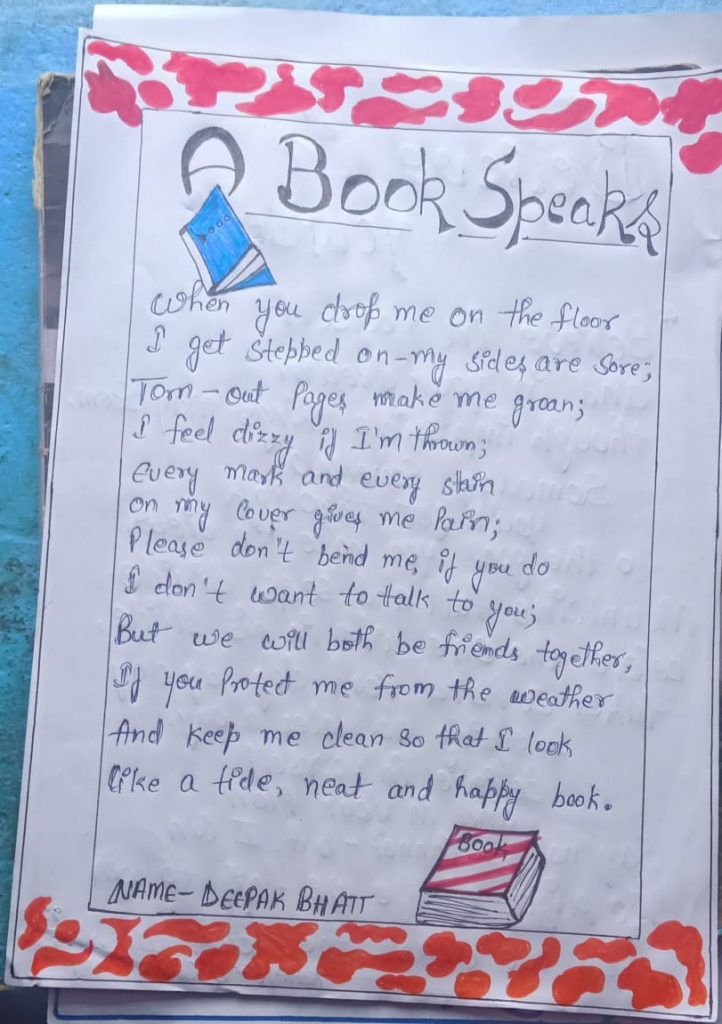 A Book Speaks
When you drop me on the floor
I get stepped on - my sides are sore;
Torn - out pages make me groan;
I feel dizzy if I'm thrown;
every mark and every stain
on my cover gives me pain;
Please don't bend me, if you do
I don't want to talk to you;
But we will both be friends together,
If you protect me from the weather
And keep me clean so that I look
like a tide, neat and happy book.
Book
NAME- DEEPAK BHATT